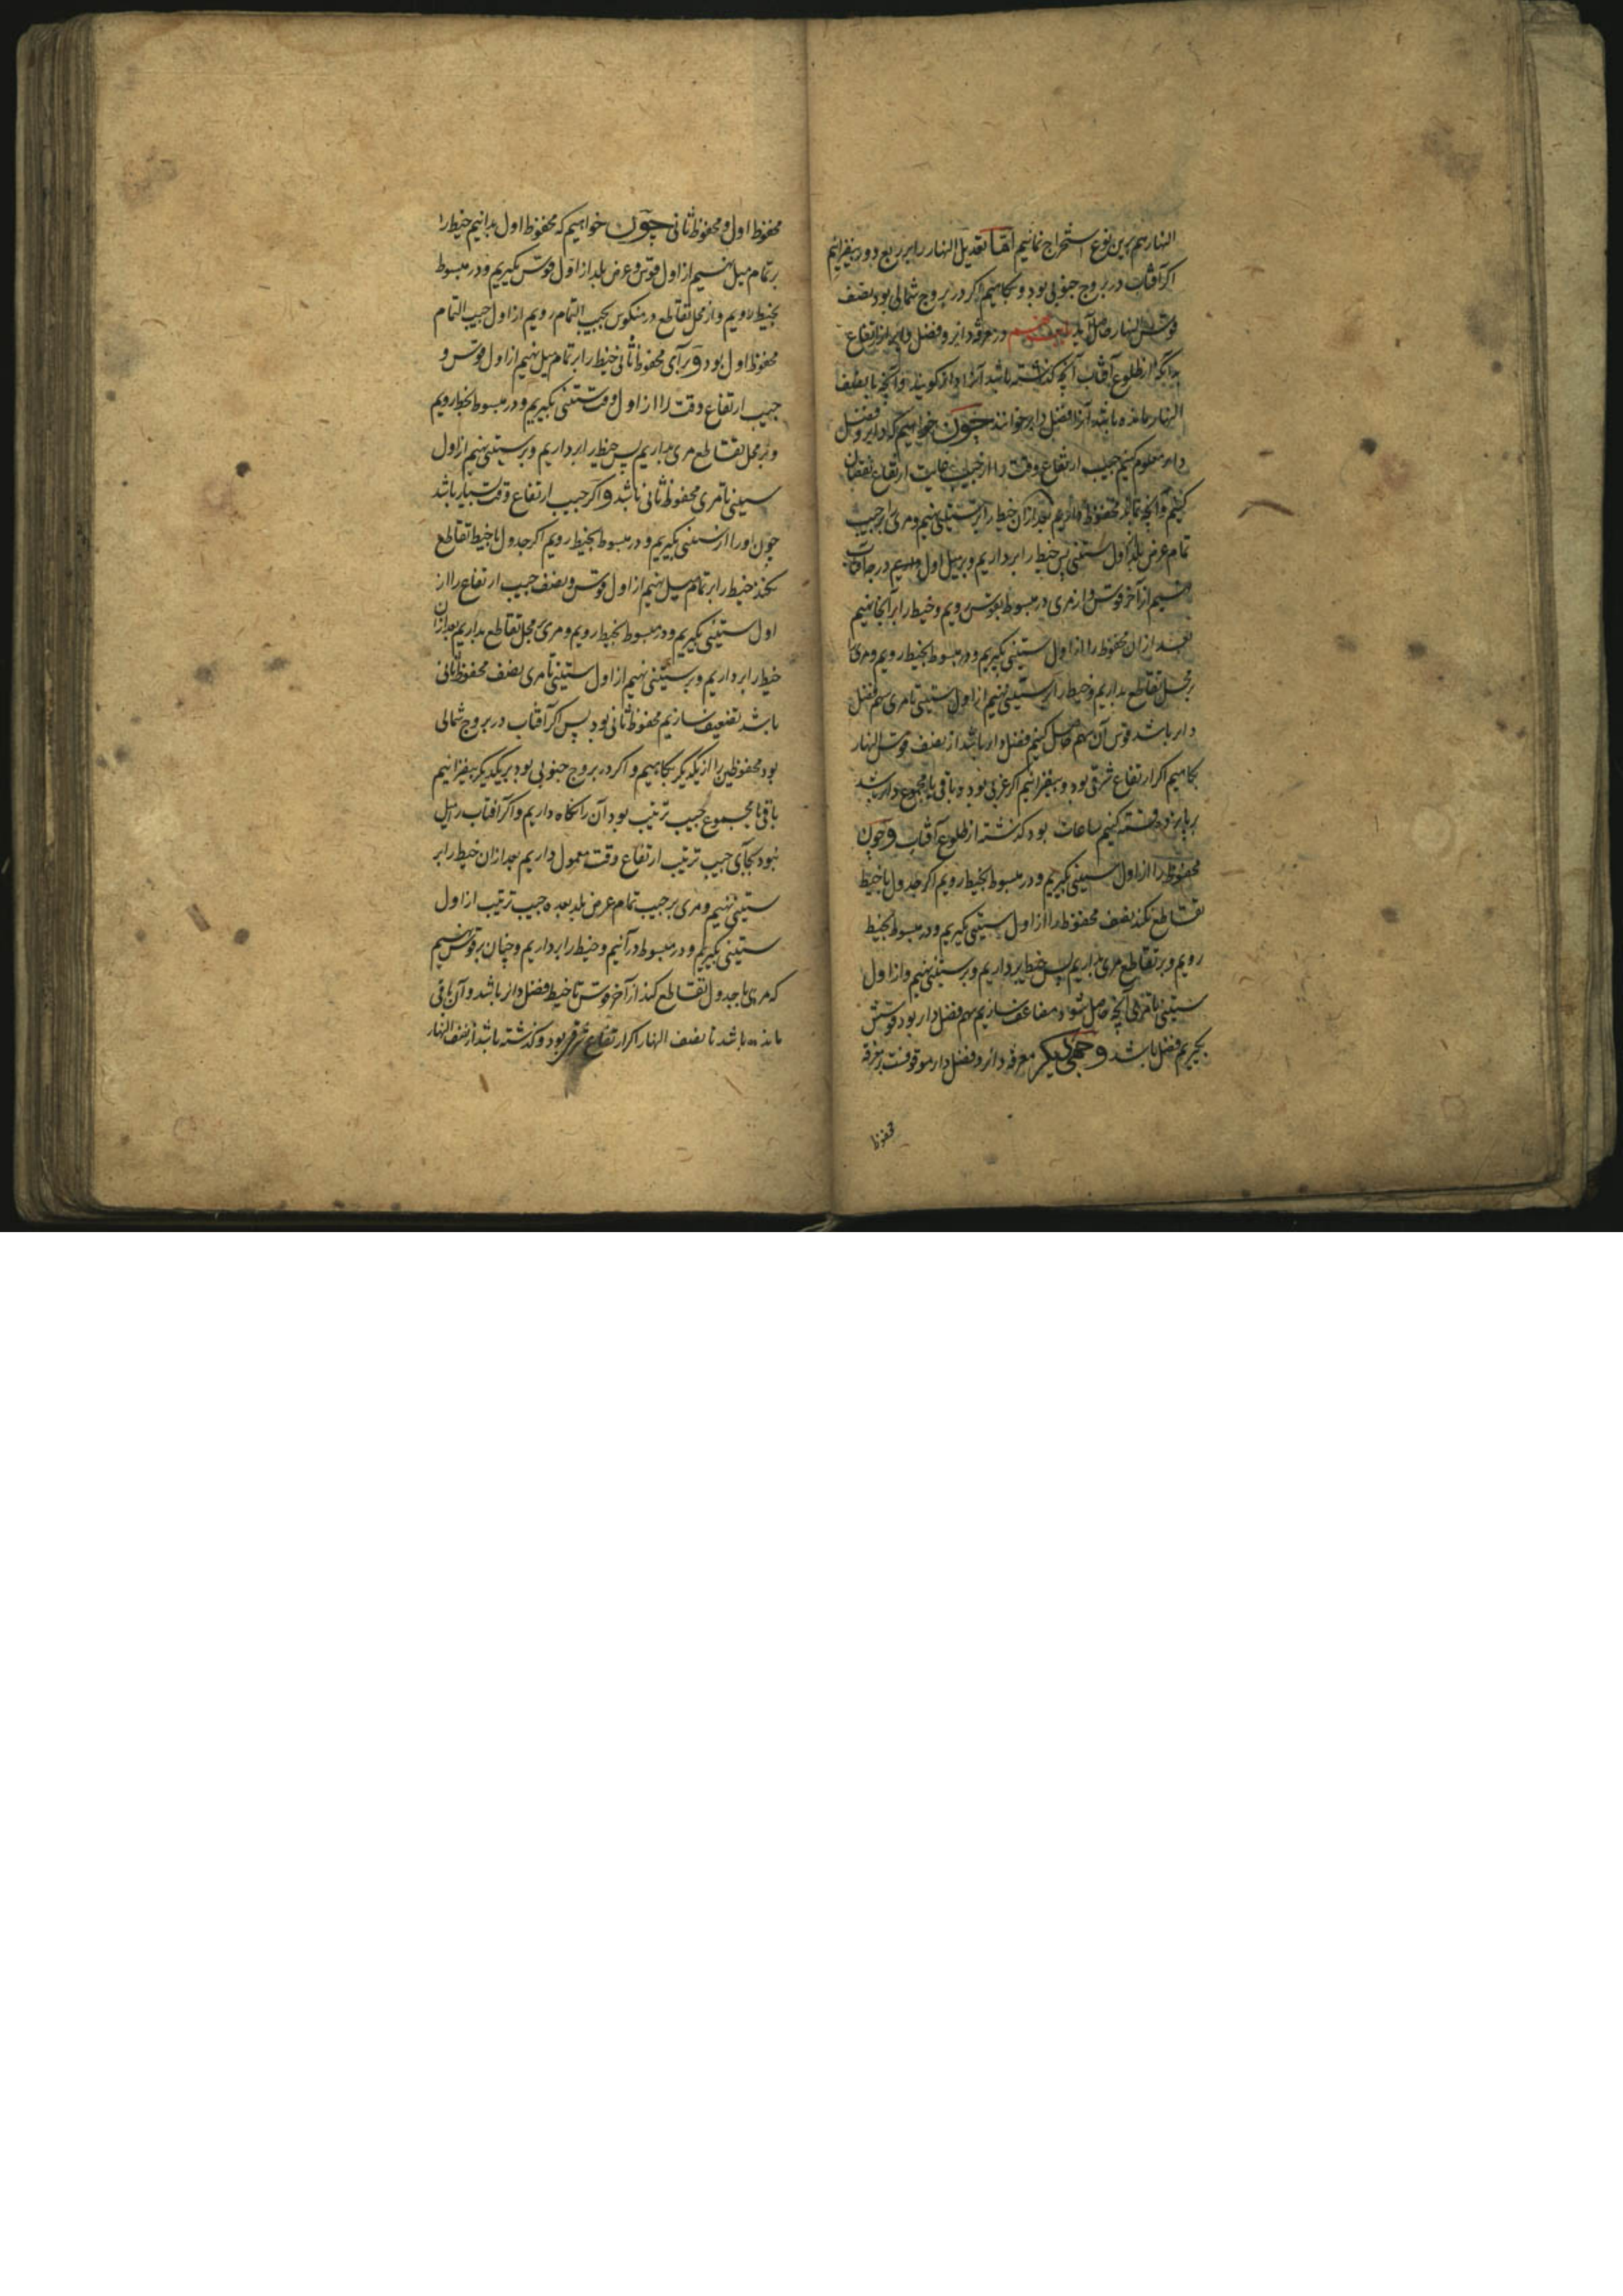 النهار هم برین نوع استخراج نمائیم اما تعدیل النهار را بر ربع دور بیفزائیم
اگر آفتاب در بروج جنوبی بود و بکاهیم اگر در بروج شمالی بود نصف
قوس النهار حاصل آید در معرفه دایر و فضل دایر از ارتفاع
از طلوع آفتاب آنچه گذشته باشد آنرا دایر گویند و آنچه تا نصف
النهار مانده باشد آنرا فضل دایر خوانند چون خواهیم که دایر و فضل
دایر معلوم کنیم جیب ارتفاع وقت را از جیب غایت ارتفاع نقصان
کنیم و آنچه بماند محفوظ داریم بعد از آن خیط را بر ستینی نهیم و مری بر جیب
تمام عرض بلد از اول ستینی پس خیط را برداریم و بر میل اول
نهیم از آخر قوس و از مری در مبسوط بقوس رویم و خیط را بر آنجا نهیم
بعد از آن محفوظ را از اول ستینی بگیریم و در مبسوط بخیط رویم و مری را
بر محل تقاطع بداریم و خیط را بر ستینی نهیم از اول ستینی تا مری سهم فضل
دایر باشد قوس آن سهم حاصل کنیم فضل دایر باشد از نصف قوس النهار
بکاهیم اگر ارتفاع شرقی بود و بیفزائیم اگر غربی بود و باقی یا مجموع دایر باشد
بر پانزده قسمت کنیم ساعات بود گذشته از طلوع آفتاب و چون
محفوظ را از اول ستینی بگیریم و در مبسوط بخیط رویم اگر جدول با خیط
تقاطع نکند نصف محفوظ را از اول ستینی بگیریم و در مبسوط بخیط
رویم و بر تقاطع مری بداریم پس خیط برداریم و بر ستینی نهیم و از اول
ستینی تا مری آنچه حاصل شود مضاعف سازیم سهم فضل دایر بود قوسش
بگیریم فضل باشد وجهی دیگر معرفه دایر و فضل دایر موقوفست بمعرفه
محفوظ
محفوظ اول و محفوظ ثانی چون خواهیم که محفوظ اول بدانیم خیط را
بر تمام میل نهیم از اول قوس و عرض بلد از اول قوس بگیریم و در مبسوط
بخیط رویم و از محل تقاطع در منکوس بجیب التمام رویم از اول جیب التمام
محفوظ اول بود و برای محفوظ ثانی خیط را بر تمام میل نهیم از اول قوس و
جیب ارتفاع وقت را از اول ستینی بگیریم و در مبسوط بخیط رویم
و بر محل تقاطع مری بداریم پس خیط را برداریم و بر ستینی نهیم از اول
ستینی تا مری محفوظ ثانی باشد و اگر جیب ارتفاع وقت بسیار باشد
چون او را از ستینی بگیریم و در مبسوط بخیط رویم اگر جدول با خیط تقاطع
نکند خیط را بر تمام میل نهیم از اول قوس و نصف جیب ارتفاع را از
اول ستینی بگیریم و در مبسوط بخیط رویم و مری بمحل تقاطع بداریم بعد از آن
خیط را برداریم و بر ستینی نهیم از اول ستینی تا مری نصف محفوظ ثانی
باشد تضعیف سازیم محفوظ ثانی بود پس اگر آفتاب در بروج شمالی
بود محفوظین را از یکدیگر بکاهیم و اگر در بروج جنوبی بود بر یکدیگر بیفزائیم
باقی یا مجموع جیب ترتیب بود آن را نگاه داریم و اگر آفتاب را میل
نبود بجای جیب ترتیب ارتفاع وقت معمول داریم بعد از آن خیط را بر
ستینی نهیم و مری بر جیب تمام عرض بلد بعده جیب ترتیب از اول
ستینی بگیریم و در مبسوط در آئیم و خیط را برداریم و چنان بر قوس نهیم
که مری با جدول تقاطع کند از آخر قوس تا خیط فضل دایر باشد و آن باقی
مانده باشد تا نصف النهار اگر ارتفاع شرقی بود و گذشته باشد از نصف النهار